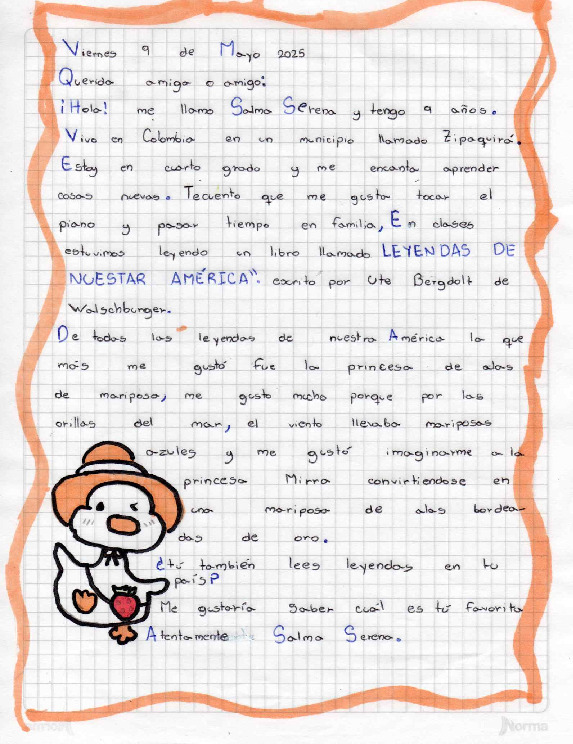 Viernes 9 de Mayo 2025
Querido amiga o amigo:
¡Hola! me llamo Salma Serena y tengo 9 años.
Vivo en Colombia en un municipio llamado Zipaquirá.
Estoy en cuarto grado y me encanta aprender
cosas nuevas. Tecuento que me gusta tocar el
piano y pasar tiempo en familia, En clases
estuvimos leyendo un libro llamado LEYENDAS DE
NUESTAR AMÉRICA". escrito por Ute Bergdolt de
Walschburger.
De todas las leyendas de nuestra América la que
más me gustó fue la princesa de alas
de mariposa, me gusto mucho porque por las
orillas del mar, el viento llevaba mariposas
azules y me gustó imaginarme a la
princesa Mirra convirtiendose en
una mariposa de alas bordea-
das de oro.
¿tú también lees leyendas en tu
país?
Me gustaría saber cuál es tú favorita
Atentamente Salma Serena.
Norma